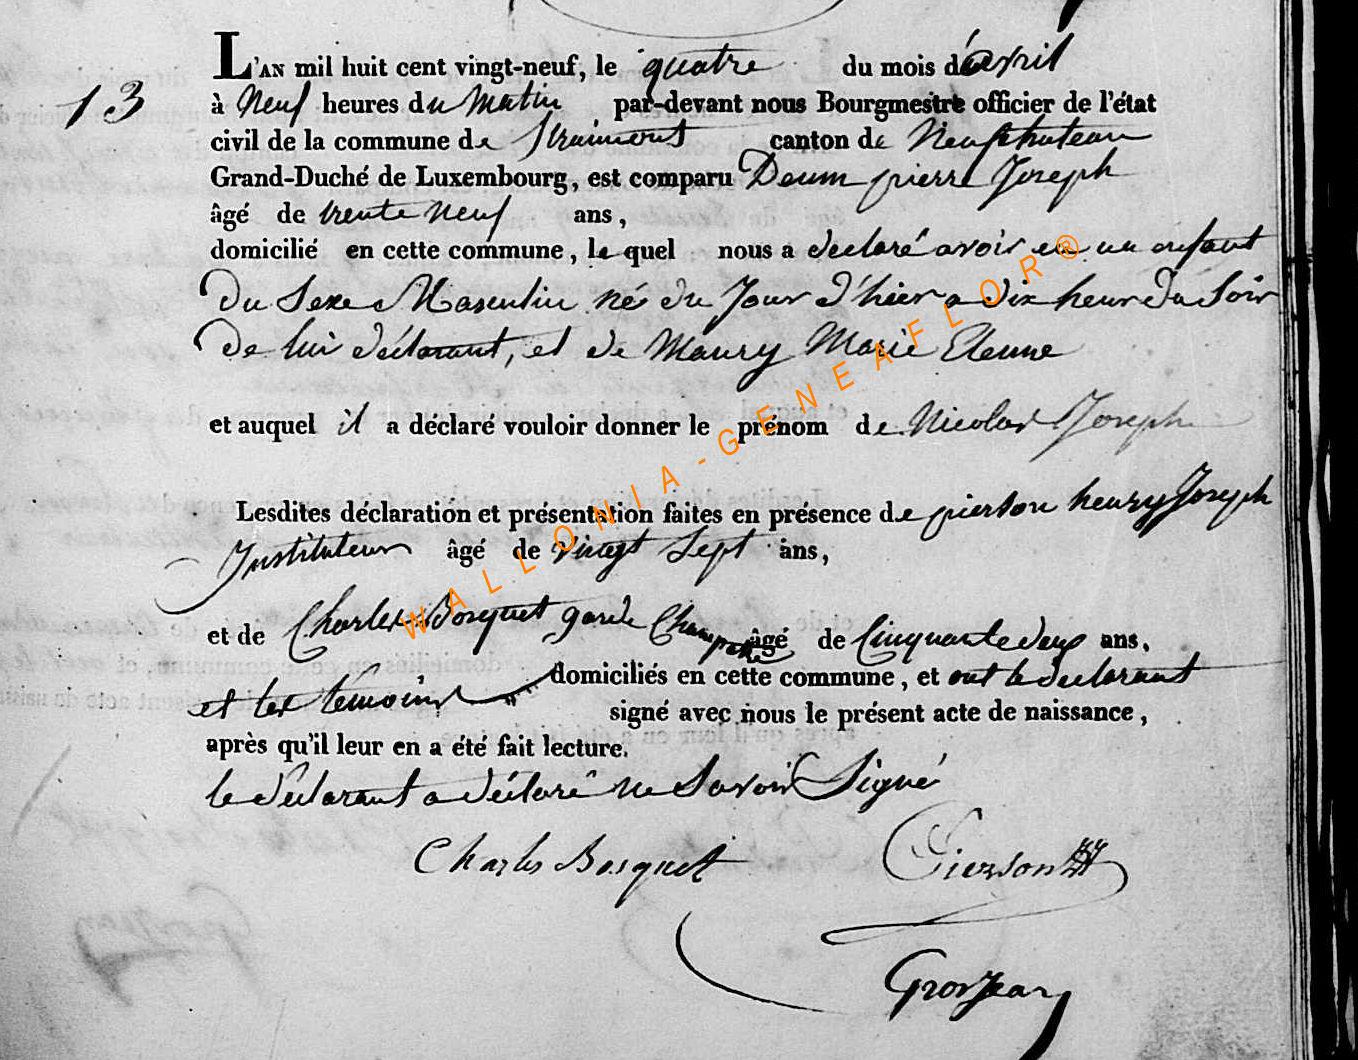 L'AN mil huit cent vingt-neuf, le quatre du mois d'avril
13
à Neuf heures du Matin par-devant nous Bourgmestre officier de l'état
civil de la commune de Straimont canton de Neufchateau
Grand-Duché de Luxembourg, est comparu Deum pierre Joseph
âgé de trente neuf ans,
domicilié en cette commune, le quel nous a declaré avoir eu un enfant
Du Sexe Masculin né du Jour d'hier a dix heur du Soir
De lui déclarant, et de Maury Marie Eleune
et auquel il a déclaré vouloir donner le prénom de Nicolas Joseph
Lesdites déclaration et présentation faites en présence de pierson henry Joseph
Instituteur âgé de vingt Sept ans,
et de Charles Bosquet garde Champetre âgé de Cinquante deux ans,
domiciliés en cette commune, et ont le declarant
et les témoins signé avec nous le présent acte de naissance,
après qu'il leur en a été fait lecture.
le déclarant a déclaré ne Savoir Signé
Charles Bosquet Pierson HJ
GrosJean
WALLONIA-GENEAFLOR®